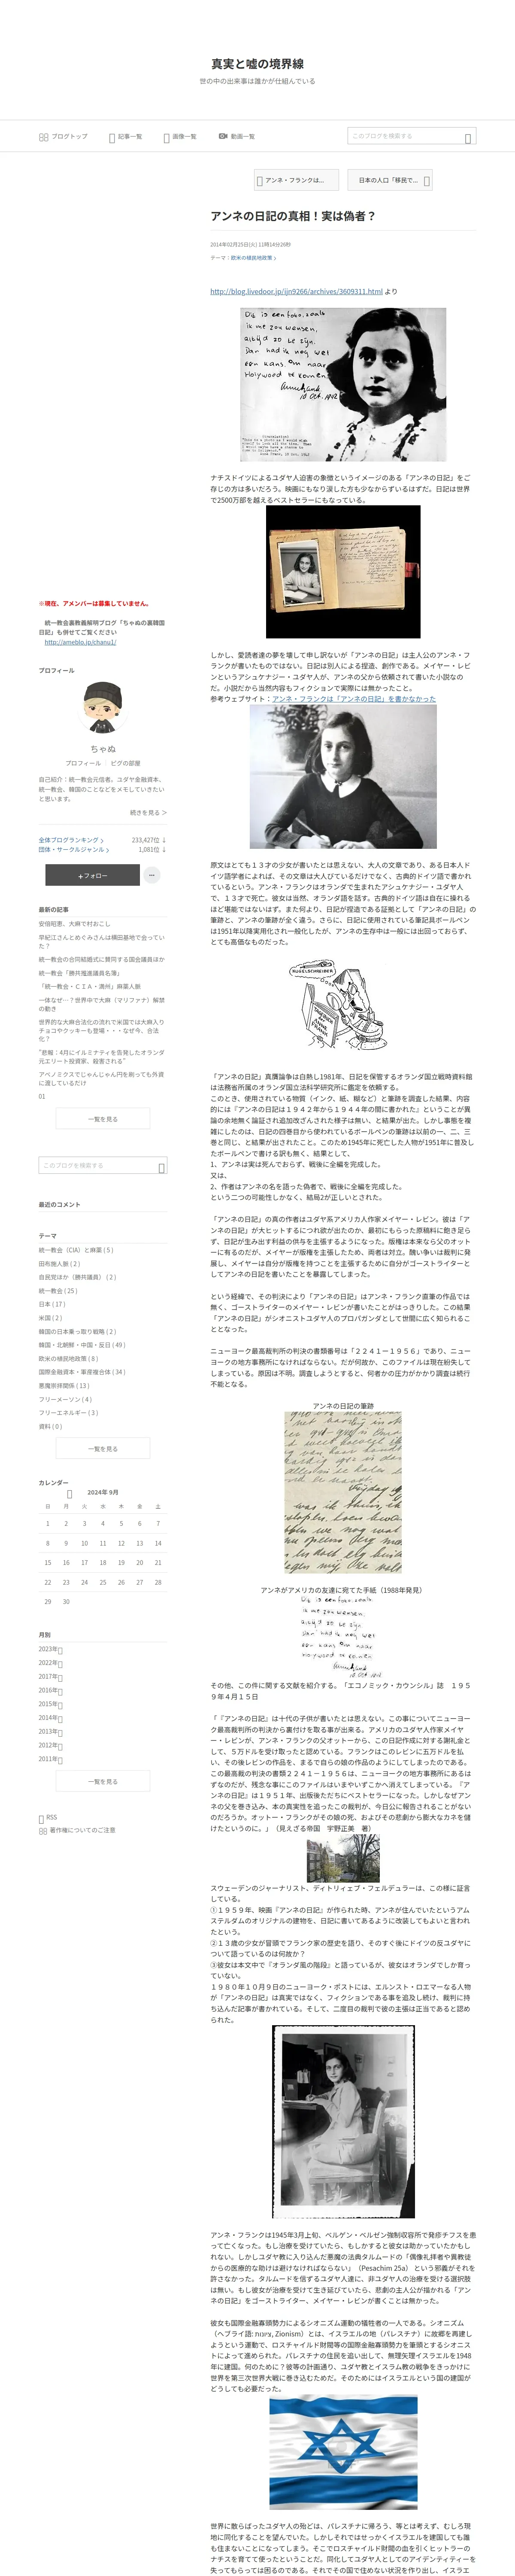 真実と嘘の境界線
世の中の出来事は誰かが仕組んでいる
ブログトップ
記事一覧
画像一覧
動画一覧
このブログを検索する
アンネ・フランクは...
日本の人口「移民で...
アンネの日記の真相！実は偽者？
2014年02月25日(火) 11時14分26秒
テーマ：欧米の植民地政策
http://blog.livedoor.jp/ijn9266/archives/3609311.html より
ナチスドイツによるユダヤ人迫害の象徴というイメージのある「アンネの日記」をご
存じの方は多いだろう。映画にもなり涙した方も少なからずいるはずだ。日記は世界
で2500万部を越えるベストセラーにもなっている。
しかし、愛読者達の夢を壊して申し訳ないが「アンネの日記」は主人公のアンネ・フ
ランクが書いたものではない。日記は別人による捏造、創作である。メイヤー・レビ
ンというアシュケナジー・ユダヤ人が、アンネの父から依頼されて書いた小説なの
だ。小説だから当然内容もフィクションで実際には無かったこと。
参考ウェブサイト：アンネ・フランクは「アンネの日記」を書かなかった
原文はとても１３才の少女が書いたとは思えない、大人の文章であり、ある日本人ド
イツ語学者によれば、その文章は大人びているだけでなく、古典的ドイツ語で書かれ
ているという。アンネ・フランクはオランダで生まれたアシュケナジー・ユダヤ人
で、１３才で死亡。彼女は当然、オランダ語を話す。古典的ドイツ語は自在に操れる
ほど堪能ではないはず。また何より、日記が捏造である証拠として「アンネの日記」の
筆跡と、アンネの筆跡が全く違う。さらに、日記に使用されている筆記具ボールペン
は1951年以降実用化され一般化したが、アンネの生存中は一般には出回っておらず、
とても高価なものだった。
「アンネの日記」真贋論争は白熱し1981年、日記を保管するオランダ国立戦時資料館
は法務省所属のオランダ国立法科学研究所に鑑定を依頼する。
このとき、使用されている物質（インク、紙、糊など）と筆跡を調査した結果、内容
的には『アンネの日記は１９４２年から１９４４年の間に書かれた』ということが異
論の余地無く論証され追加改ざんされた様子は無い、と結果が出た。しかし事態を複
雑にしたのは、日記の四巻目から使われているボールペンの筆跡は以前の一、二、三
巻と同じ、と結果が出されたこと。このため1945年に死亡した人物が1951年に普及し
たボールペンで書ける訳も無く、結果として、
1、アンネは実は死んでおらず、戦後に全編を完成した。
又は、
2、作者はアンネの名を語った偽者で、戦後に全編を完成した。
という二つの可能性しかなく、結局2が正しいとされた。
「アンネの日記」の真の作者はユダヤ系アメリカ人作家メイヤー・レビン。彼は「ア
ンネの日記」が大ヒットするにつれ欲が出たのか、最初にもらった原稿料に飽き足ら
ず、日記が生み出す利益の供与を主張するようになった。版権は本来なら父のオット
ーに有るのだが、メイヤーが版権を主張したため、両者は対立。醜い争いは裁判に発
展し、メイヤーは自分が版権を持つことを主張するために自分がゴーストライターと
してアンネの日記を書いたことを暴露してしまった。
という経緯で、その判決により「アンネの日記」はアンネ・フランク直筆の作品では
無く、ゴーストライターのメイヤー・レビンが書いたことがはっきりした。この結果
「アンネの日記」がシオニストユダヤ人のプロパガンダとして世間に広く知られるこ
ととなった。
ニューヨーク最高裁判所の判決の書類番号は「２２４１－１９５６」であり、ニュー
ヨークの地方事務所になければならない。だが何故か、このファイルは現在紛失して
しまっている。原因は不明。調査しようとすると、何者かの圧力がかかり調査は続行
不能となる。
アンネの日記の筆跡
アンネがアメリカの友達に宛てた手紙（1988年発見）
その他、この件に関する文献を紹介する。「エコノミック・カウンシル」誌　１９５
９年４月１５日
「『アンネの日記』は十代の子供が書いたとは思えない。この事についてニューヨー
ク最高裁判所の判決から裏付けを取る事が出来る。アメリカのユダヤ人作家メイヤ
ー・レビンが、アンネ・フランクの父オットーから、この日記作成に対する謝礼金と
して、５万ドルを受け取ったと認めている。フランクはこのレビンに五万ドルを払
い、その後レビンの作品を、まるで自らの娘の作品のようにしてしまったのである。
この最高裁の判決の書類２２４１－１９５６は、ニューヨークの地方事務所にあるは
ずなのだが、残念な事にこのファイルはいまやいずこかへ消えてしまっている。『アン
ネの日記』は１９５１年、出版後ただちにベストセラーになった。しかしなぜアンネ
の父を巻き込み、本の真実性を追ったこの裁判が、今日公に報告されることがないの
だろうか。オットー・フランクがその娘の死、およびその悲劇から膨大なカネを儲
けたというのに。」（見えざる帝国　宇野正美　著）
スウェーデンのジャーナリスト、ディトリィェブ・フェルデュラーは、この様に証言
している。
①１９５９年、映画『アンネの日記』が作られた時、アンネが住んでいたというアム
ステルダムのオリジナルの建物を、日記に書いてあるように改装してもよいと言われ
たという。
②１３歳の少女が冒頭でフランク家の歴史を語り、そのすぐ後にドイツの反ユダヤに
ついて語っているのは何故か？
③彼女は本文中で『オランダ風の階段』と語っているが、彼女はオランダでしか育っ
ていない。
１９８０年１０月９日のニューヨーク・ポストには、エルンスト・ロエマーなる人物
が「アンネの日記」は真実ではなく、フィクションである事を追及し続け、裁判に持
ち込んだ記事が書かれている。そして、二度目の裁判で彼の主張は正当であると認め
られた。
アンネ・フランクは1945年3月上旬、ベルゲン・ベルゼン強制収容所で発疹チフスを患
って亡くなった。もし治療を受けていたら、もしかすると彼女は助かっていたかもし
れない。しかしユダヤ教に入り込んだ悪魔の法典タルムードの「偶像礼拝者や異教徒
からの医療的な助けは避けなければならない」（Pesachim 25a）という邪義がそれを
許さなかった。タルムードを信ずるユダヤ人達に、非ユダヤ人の治療を受ける選択肢
は無い。もし彼女が治療を受けて生き延びていたら、悲劇の主人公が描かれる「アン
ネの日記」をゴーストライター、メイヤー・レビンが書くことは無かった。
彼女も国際金融寡頭勢力によるシオニズム運動の犠牲者の一人である。シオニズム
（ヘブライ語: ציונות, Zionism）とは、イスラエルの地（パレスチナ）に故郷を再建し
ようという運動で、ロスチャイルド財閥等の国際金融寡頭勢力を筆頭とするシオニス
トによって進められた。パレスチナの住民を追い出して、無理矢理イスラエルを1948
年に建国。何のために？彼等の計画通り、ユダヤ教とイスラム教の戦争をきっかけに
世界を第三次世界大戦に巻き込むためだ。そのためにはイスラエルという国の建国が
どうしても必要だった。
世界に散らばったユダヤ人の殆どは、パレスチナに帰ろう、等とは考えず、むしろ現
地に同化することを望んでいた。しかしそれではせっかくイスラエルを建国しても誰
も住まないことになってしまう。そこでロスチャイルド財閥の血を引くヒットラーの
ナチスを育てて使ったということだ。同化してユダヤ人としてのアイデンティティーを
失ってもらっては困るのである。それでその国で住めない状況を作り出し、イスラエ
※現在、アメンバーは募集していません。
統一教会裏教義解明ブログ「ちゃぬの裏韓国
日記」も併せてご覧ください
http://ameblo.jp/chanu1/
プロフィール
ちゃぬ
プロフィール｜ピグの部屋
自己紹介：統一教会元信者。ユダヤ金融資本、
統一教会、韓国のことなどをメモしていきたい
と思います。
続きを見る ＞
全体ブログランキング　233,427位 ↓
団体・サークルジャンル　1,081位 ↓
+フォロー
最新の記事
安倍昭恵、大麻で村おこし
早紀江さんとめぐみさんは横田基地で会ってい
た？
統一教会の合同結婚式に賛同する国会議員ほか
統一教会「勝共推進議員名簿」
「統一教会・ＣＩＡ・満州」麻薬人脈
一体なぜ…？世界中で大麻（マリファナ）解禁
の動き
世界的な大麻合法化の流れで米国では大麻入り
チョコやクッキーも登場・・・なぜ今、合法
化？
"悲報：4月にイルミナティを告発したオランダ
元エリート投資家、殺害される"
アベノミクスでじゃんじゃん円を刷っても外資
に渡しているだけ
01
一覧を見る
このブログを検索する
最近のコメント
テーマ
統一教会（CIA）と麻薬 ( 5 )
田布施人脈 ( 2 )
自民党ほか（勝共議員） ( 2 )
統一教会 ( 25 )
日本 ( 17 )
米国 ( 2 )
韓国の日本乗っ取り戦略 ( 2 )
韓国・北朝鮮・中国・反日 ( 49 )
欧米の植民地政策 ( 8 )
国際金融資本・軍産複合体 ( 34 )
悪魔崇拝関係 ( 13 )
フリーメーソン ( 4 )
フリーエネルギー ( 3 )
資料 ( 0 )
一覧を見る
カレンダー
2024年 9月
日 月 火 水 木 金 土
1 2 3 4 5 6 7
8 9 10 11 12 13 14
15 16 17 18 19 20 21
22 23 24 25 26 27 28
29 30
月別
2023年
2022年
2017年
2016年
2015年
2014年
2013年
2012年
2011年
一覧を見る
RSS
著作権についてのご注意